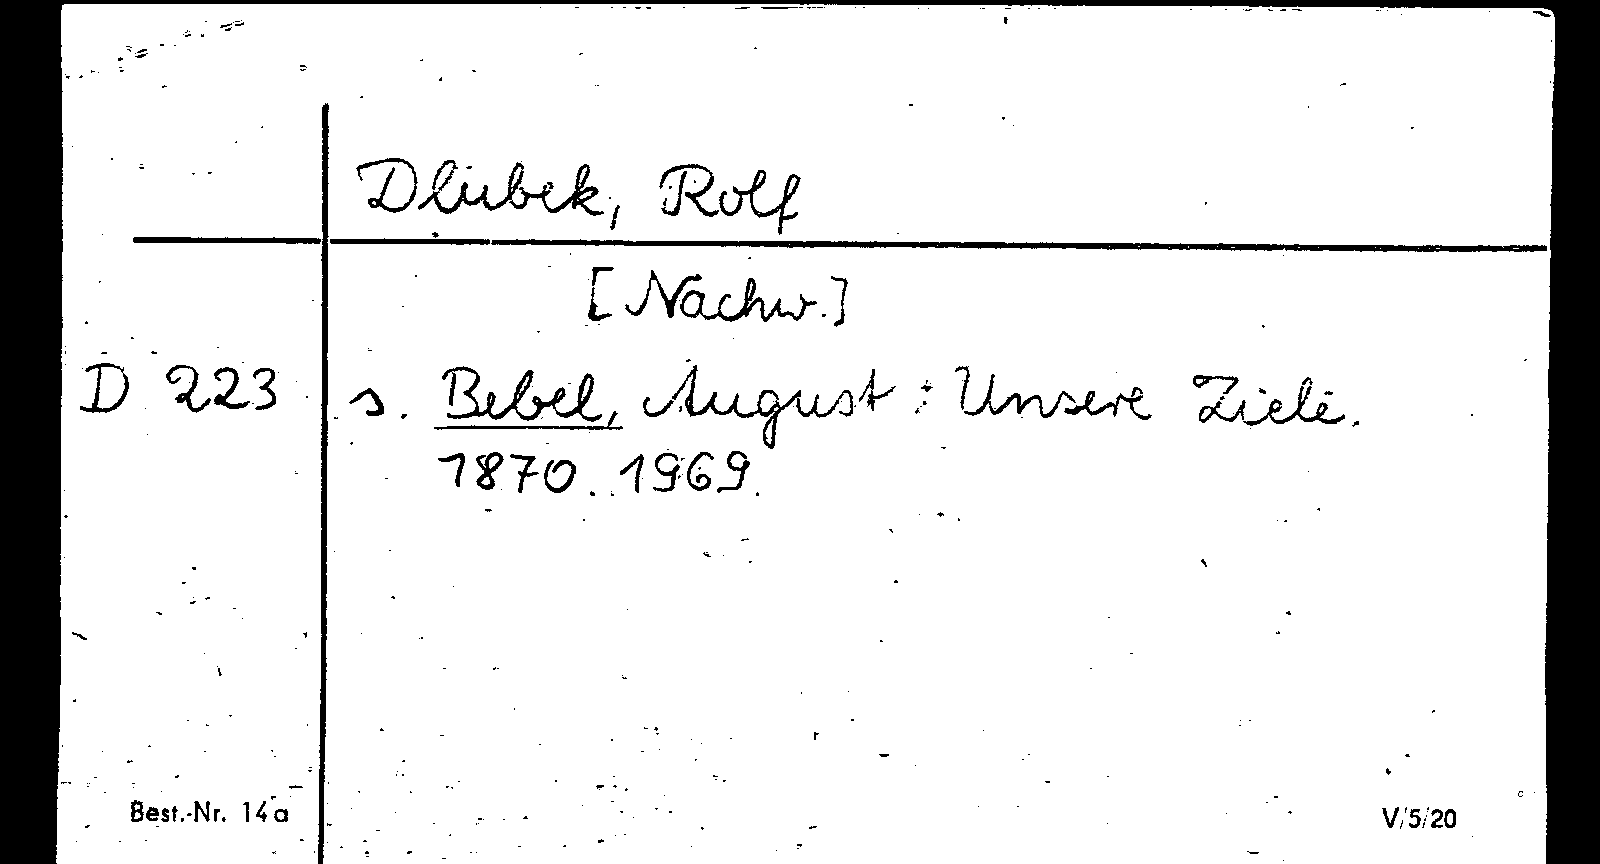 Dlubek, Rolf
[Nachw.]
D 223 s. Bebel, August: Unsere Ziele.
1870. 1969.
Best.-Nr. 14a V/5/20